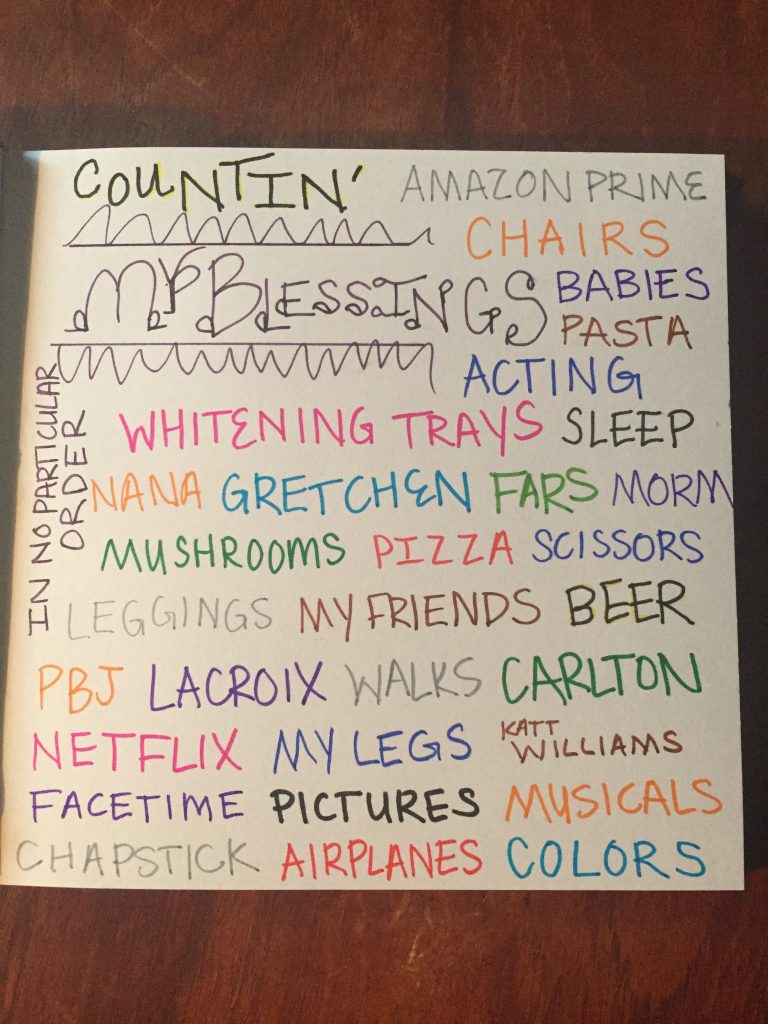 COUNTIN' AMAZON PRIME
CHAIRS
MY BLESSINGS BABIES
PASTA
ACTING
IN NO PARTICULAR
ORDER
WHITENING TRAYS SLEEP
NANA GRETCHEN FARS MORM
MUSHROOMS PIZZA SCISSORS
LEGGINGS MY FRIENDS BEER
PBJ LACROIX WALKS CARLTON
NETFLIX MY LEGS KATT
WILLIAMS
FACETIME PICTURES MUSICALS
CHAPSTICK AIRPLANES COLORS